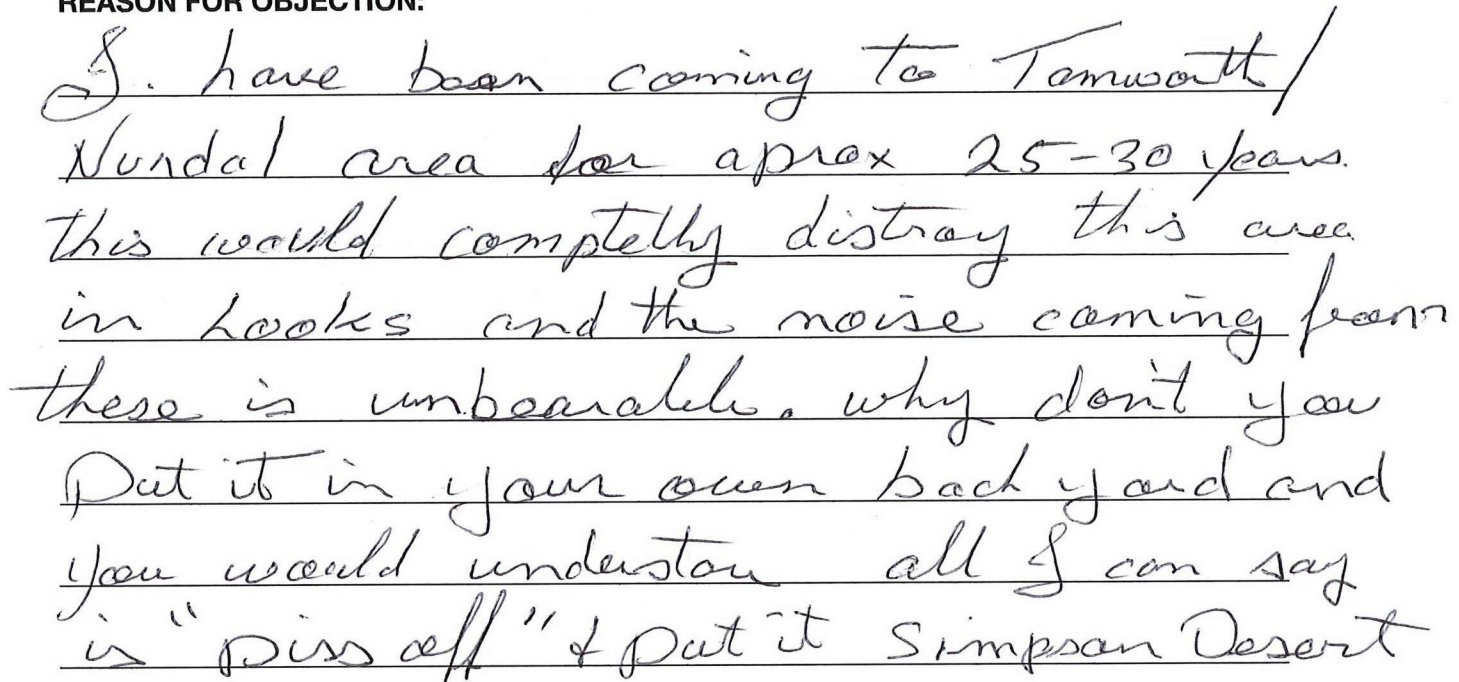 REASON FOR OBJECTION:
I. have been coming to Tamworth/
Nundal area for aprox 25-30 years.
this would comptelly distroy this area
in Looks and the noise coming from
these is unbearable. why don't you
Put it in your own back yard and
you would understan all I can say
is "piss off" & put it Simpson Desert